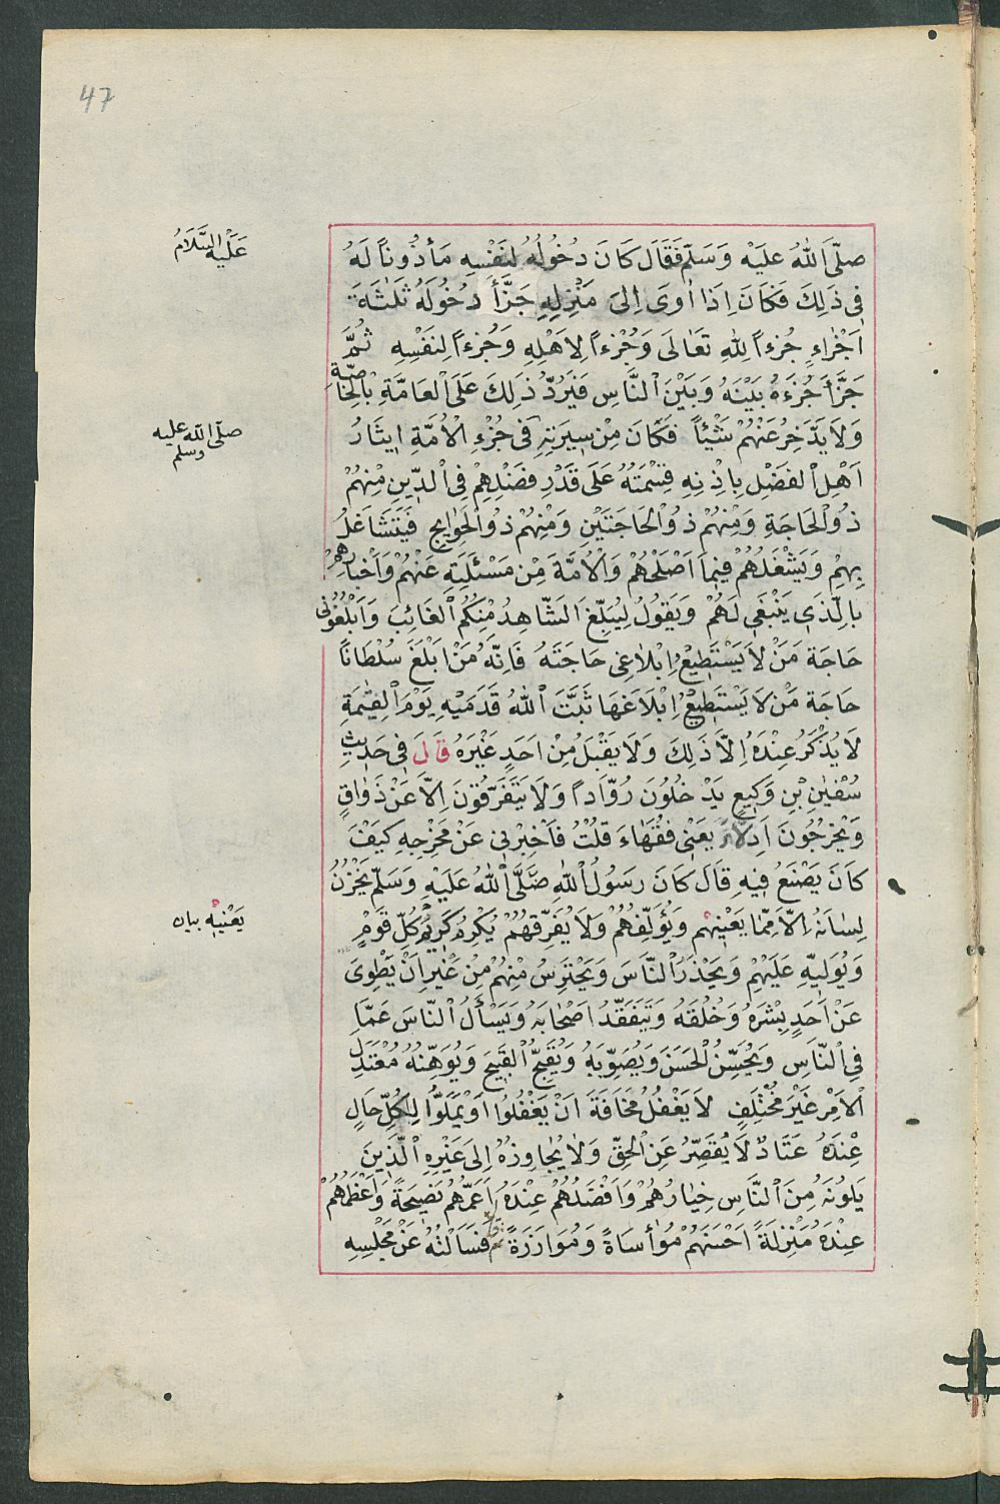 47
صلَّى اَللهُ عليَهْ وَسَلّمَ فَقَالَ كاَنَ دُخُولُهُ لِنَفْسِهِ مَأذُوناً لَهُ
عَلَيْهِ السَّلَامُ
فى ذَلِكَ فَكَانَ اِذَا اٰوىَ اِلىَ مَنْزِلِهِ جَزَّأَ دُخُولَهُ ثَلٰثَةَ
اَجْزٰاءٍ جُزءاً لِلّٰهِ تَعَالَى وَجُزْءاً لِاَهْلِهِ وَجُزءاً لِنَفْسِهِ ثُمَّ
جَزَّأَ جُزَءَهُ بَيْنَهُ وَبَيْنَ اْلنَّاسِ فَيَرُدُّ ذَلِكَ عَلَى اْلعَامَّةِ بْالخَاصَّةِ
وَلاَ يَدَّخِرُ عَنْهُمْ شَيْئاً فَكَانَ مِنْ سِيرَتِهِ فى جُزْءِ اْلاُمَّةِ اِيثَارُ
صلّى الله عليه وسلم
اَهْلِ اْلفَضْلِ بِاِذْنِهِ قِسْمَتَهُ عَلَى قَدْرِ فَضْلِهِمْ فِى اْلدِّينِ مِنْهُمْ
ذُو اْلحَاجَةِ وَمِنْهُمْ ذُو اْلحَاجَتَيْنِ وَمِنْهُمْ ذُو اْلحَوٰايِجِ فَيَتَشَاغَلُ
بِهِمْ وَيَشْغَلُهُمْ فِيمَا اَصْلَحَهُمْ وَاْلاُمَّةَ مِنْ مَسْئَلَتِهِ عَنْهُمْ وَاَخْبَارِهِمْ
بِالَّذَى يَنْبَغى لَهُمْ وَيَقُولُ لِيُبَلِّغَ اْلشَّاهِدُ مِنْكُمُ اْلغَائِبَ وَاَبْلِغُونى
حَاجَةَ مَنْ لاَ يَسْتَطِيعُ اِبْلَاغِى حَاجَتَهُ فَاِنَّهُ مَنْ اَبْلَغَ سُلْطَانًا
حَاجَةَ مَنْ لاَ يَسْتَطِيعُ اِبْلَاغَهَا ثَبَّتَ اْللهُ قَدَمَيْهِ يَوْمَ اْلقِيٰمَةِ
لَا يُذْكَرُ عِنْدَهُ اِلاَّ ذَلِكَ وَلَا يَقْبَلُ مِنْ اَحَدٍ غَيْرَهُ قَالَ فى حَدِيثِ
سُفْيٰنِ بْنِ وَكِيعٍ يَدْخُلُونَ رُوَّاداً وَلاَ يَتَفَرَّقُونَ اِلاَّ عَنْ ذَوٰاقٍ
وَيَخْرُجُونَ اَدِلَّةً يَعْنى فُقَهَاءَ قُلْتُ فَاَخْبِرْنى عَنْ مَخْرَجِهِ كَيْفَ
كاَنَ يَصْنَعُ فِيهِ قَالَ كَانَ رَسُولُ اْللهِ صَلَّى اْللهُ عَلَيْهِ وَسَلَّمَ يَخْزُنُ
لِسٰانَهُ اِلاَّ مِمَّا يَعْنِيهُمْ وَيُؤَلِّفُهُمْ وَلاَ يُفَرِّقُهُمْ يُكْرِمُ كَرِيمَ كُلِّ قَوْمٍ
يَعْنِيهِ بيان
وَيُوَلِّيهِ عَلَيْهِمْ وَيَحْذَرُ اْلنَّاسَ وَيَحْتَرِسُ مِنْهُمْ مِنْ غَيْرِ اَنْ يَطْوِىَ
عَنْ اَحَدٍ بِشْرَهُ وَخُلُقَهُ وَيَتَفَقَّدُ اَصْحَابَهُ وَيَسْأَلُ اْلنَّاسَ عَمَّا
فِى اْلنَّاسِ وَيُحَسِّنُ اْلحَسَنَ وَيُصَوِّبُهُ وَيُقَبِّحُ اْلقَبِيحَ وَيُوَهِّنُهُ مُعْتَدِلَ
اْلاَمْرِ غَيْرَ مُخْتَلِفٍ لاَ يَغْفُلُ مَخَافَةَ اَنْ يَغْفُلُوا اَوْ يَمَلُّوا لِكُلِّ حَالٍ
عِنْدَهُ عَتَادٌ لَا يُقَصِّرُ عَنِ اْلحَقِّ وَلاٰ يُجٰاوِزُهُ اِلىَ غَيْرِهِ اْلَّذِينَ
يَلُونَهُ مِنَ اْلنَّاسِ خِيٰارُهُمْ وَاَفْضَلُهُمْ عِنْدَهُ اَعَمُّهُمْ نَصِيحَةً وَاَعْظَمُهُمْ
عِنْدَهُ مَنْزِلَةً اَحْسَنُهُمْ مُوأَسَاةً وَمُوَازَرَةً فَسَأَلْتُهُ عَنْ مَجْلِسِهِ